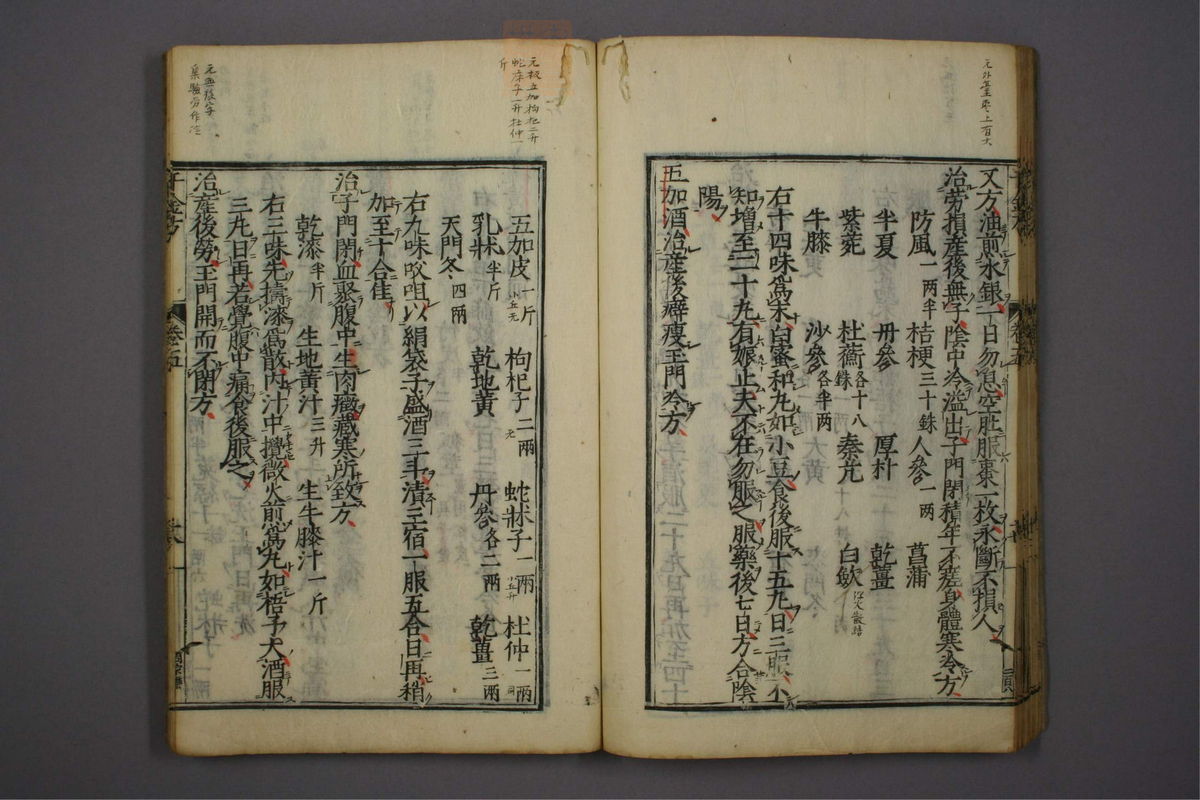 又方油煎水銀一日勿息空肚服棗大一枚永斷不損人
治勞損產後無子陰中冷溢出子門閉積年不差身體寒冷方
防風一兩半 桔梗三十銖 人參一兩 菖蒲
半夏 丹參 厚朴 乾薑
紫菀 杜蘅各十八銖 秦艽 白斂
牛膝 沙參各半兩
右十四味爲末白蜜和丸如小豆食後服十五丸日三服不
知增至二十丸有娠止夫不在勿服之服藥後七日方合陰
陽
五加酒治產後癖瘦玉門冷方
五加皮一斤 枸杞子二兩 蛇牀子一兩 杜仲一兩
乳牀半斤 乾地黃 丹參各二兩 乾薑三兩
天門冬四兩
右九味㕮咀以絹袋子盛酒三斗漬三宿一服五合日再稍
加至十合佳
治子門閉血聚腹中生肉癥臟寒所致方
乾漆半斤 生地黃汁三升 生牛膝汁一斤
右三味先擣漆爲散內汁中攪微火煎爲丸如梧子大酒服
三丸日再若覺腹中痛食後服之
治產後勞玉門開而不閉方